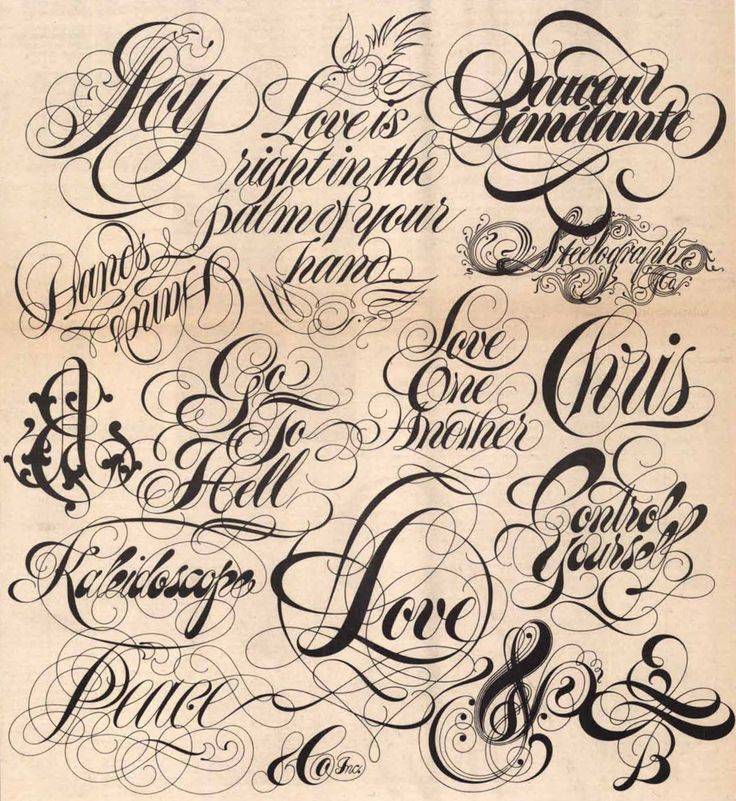 Joy
Love is
right in the
palm of your
hand
Douceur
Démélante
Steelograph
Co
Hands
Hands
Go
To
Hell
Love
One
Another
Chris
Control
Yourself
Kaleidoscope
Love
Peace
& Co Inc.
&
E
B